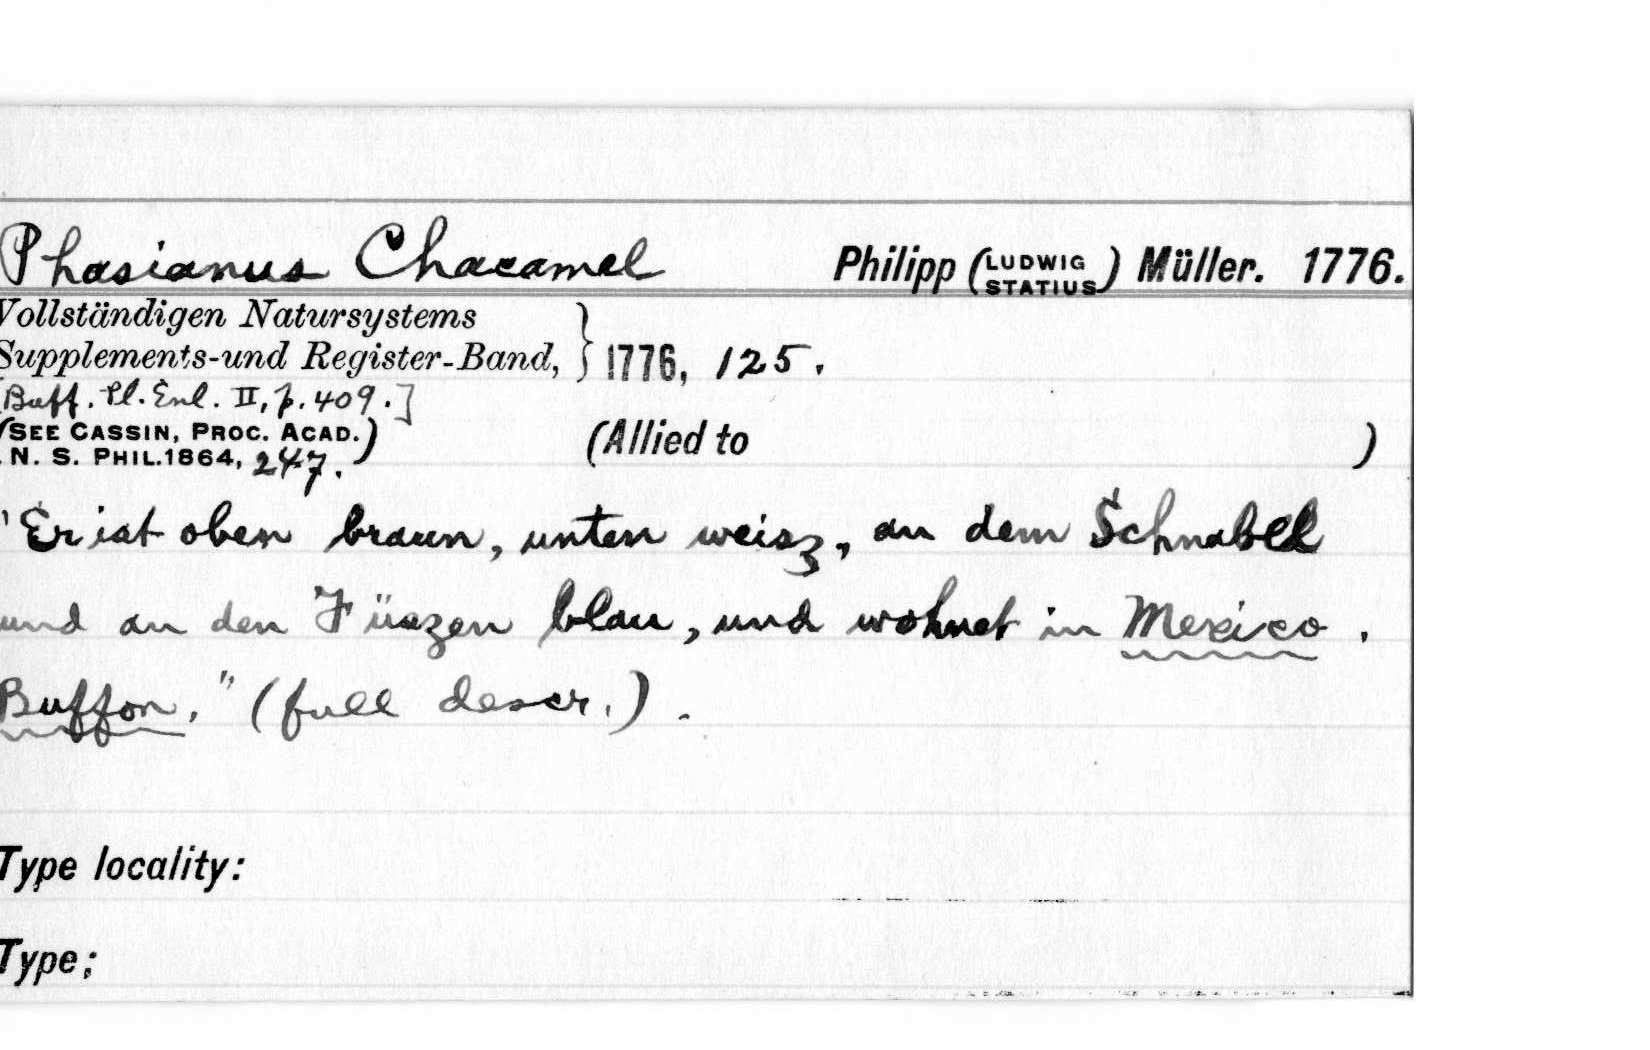 Phasianus Chacamel Philipp (LUDWIG STATIUS) Müller. 1776.
Vollständigen Natursystems
Supplements-und Register-Band, } 1776, 125.
[Buff. Pl. Enl. II, p. 409.]
(SEE CASSIN, PROC. ACAD. N. S. PHIL. 1864, 247.) (Allied to )
"Er ist oben braun, unten weisz, an dem Schnabel
und an den Füszen blau, und wohnet in Mexico.
Buffon." (full descr.).
Type locality:
Type;